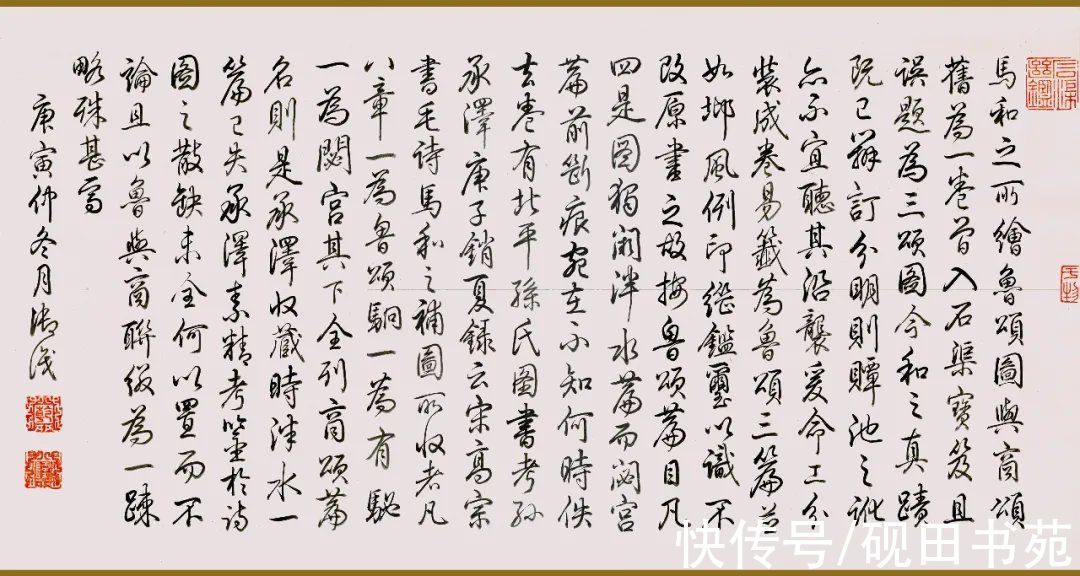 馬和之所繪魯頌圖與商頌
舊為一卷曾入石渠寶笈且
誤題為三頌圖今和之真蹟
既已辨訂分明則贉池之訛
亦不宜聽其沿襲爰命工分
裝成卷易籤為魯頌三篇並
如邶風例印繼鑑璽以識不
改原書之故按魯頌篇目凡
四是圖獨闕泮水篇而閟宮
篇前斷痕宛在不知何時佚
去卷有北平孫氏圖書考孫
承澤庚子銷夏錄云宋高宗
書毛詩馬和之補圖所收者凡
八章一為魯頌駉一為有駜
一為閟宮其下全列商頌篇
名則是承澤收藏時泮水一
篇已失承澤素精考鑒於詩
圖之散缺未全何以置而不
論且以魯與商聯綴為一疎
略殊甚焉
庚寅仲冬月御識
快传号/砚田书苑